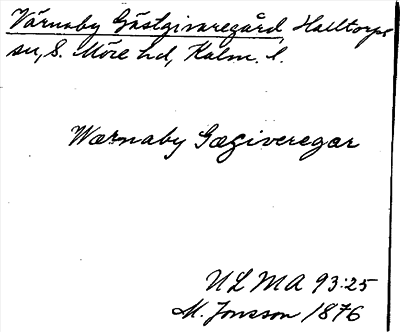 Värnaby Gästgivaregård, Halltorps
sn, S. Möre hd, Kalm. l.
Wærnaby Gægiveregar
ULMA 93:25
M. Jonsson 1876